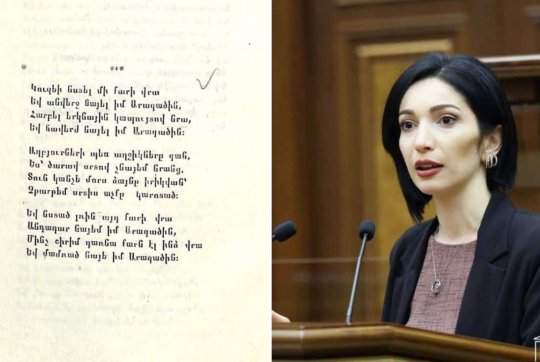 ***
Կուզեի նստել մի քարի վրա
Եվ անվերջ նայել իմ Արագածին,
Հարբել երկնային կապույտով նրա,
Եվ հավերժ նայել իմ Արագածին։
Աղբյուրների պես աղջիկները գան,
Ես՝ ծարավ սրտով չնայեմ նրանց,
Տուն կանչե մորս ձայնը իրիկվան՝
Չթարթեմ սրտիս աչքը կարոտած։
Եվ նստած լռին այդ քարի վրա
Անդադար նայեմ իմ Արագածին,
Մինչ շիրիմ դառնա քարն էլ ինձ վրա
Եվ մամռած նայե իմ Արագածին։